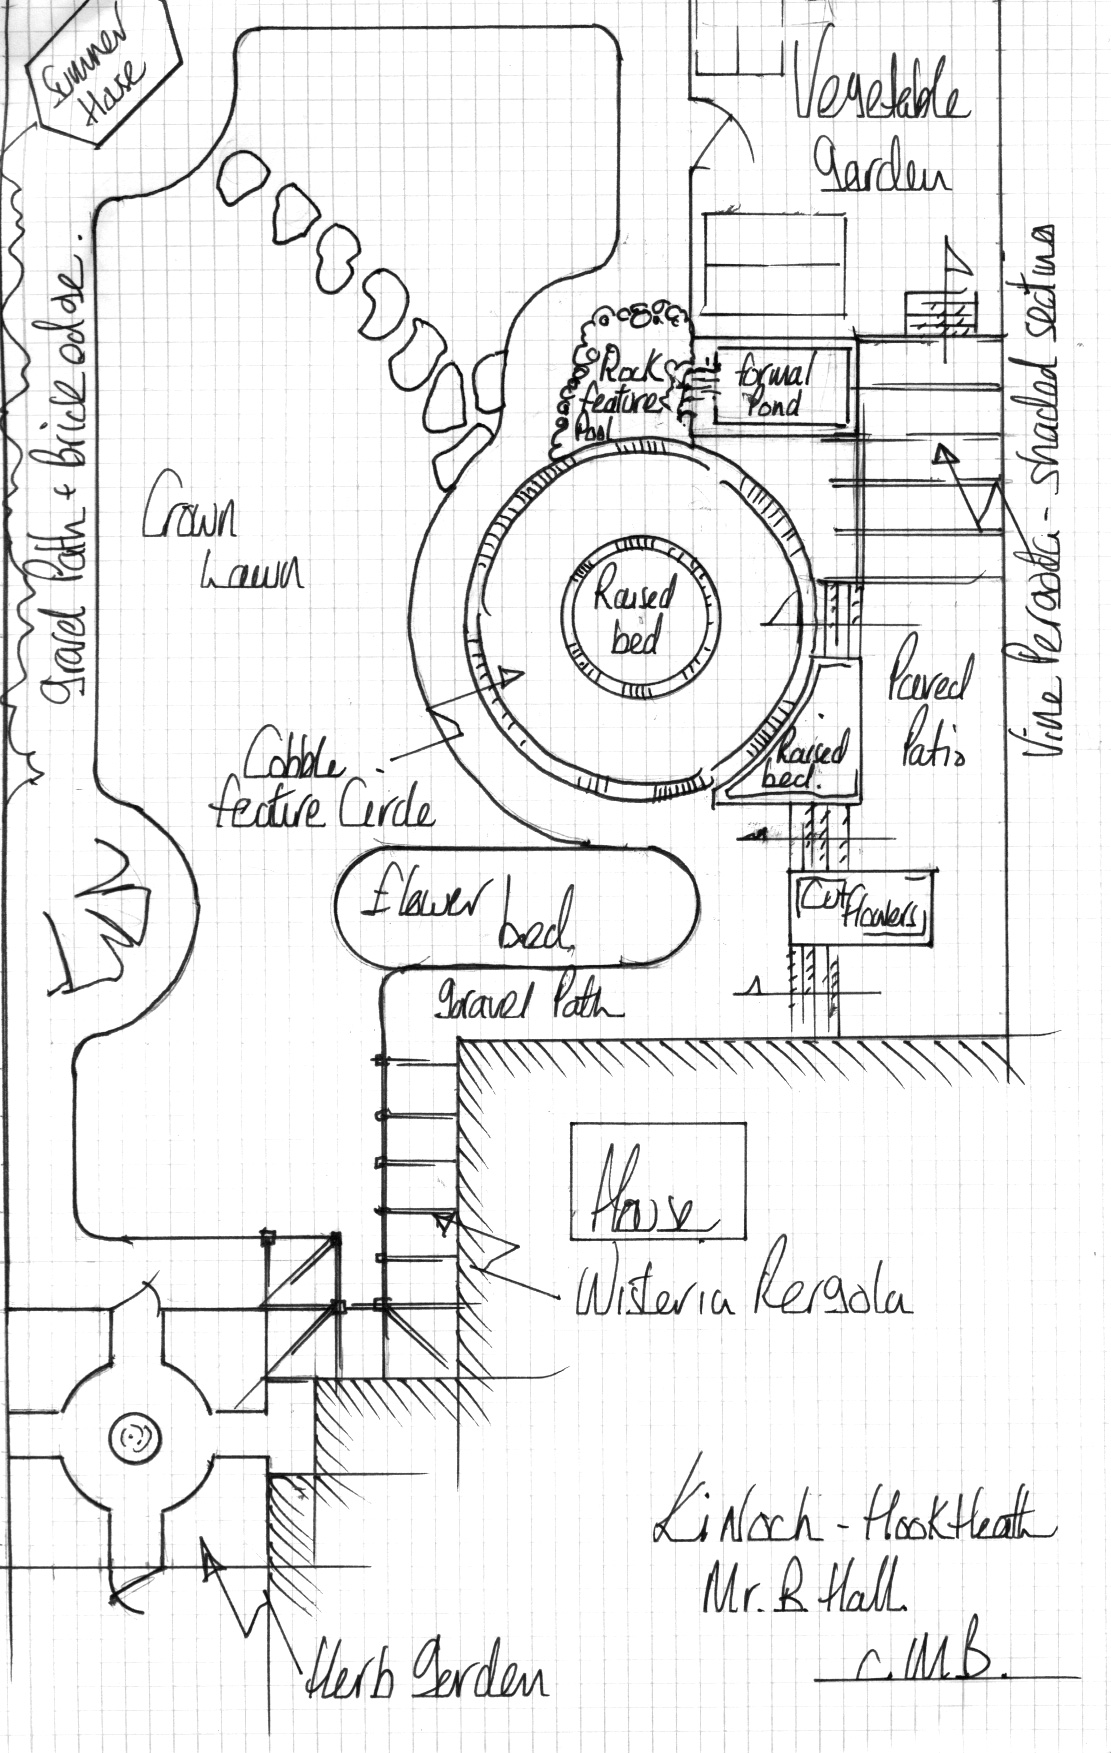 Summer
House
Vegetable
Garden
Gravel Path + brick edge.
Vine Pergola - shaded seating
Rock
features
Pool
formal
Pond
Crown
Lawn
Raised
bed
Paved
Patio
Raised
bed.
Cobble
feature Circle
Flower bed
Cut
flowers
Gravel Path
House
Wisteria Pergola
Herb Garden
Kinoch - Hook Heath
Mr. B. Hall.
C. M B.